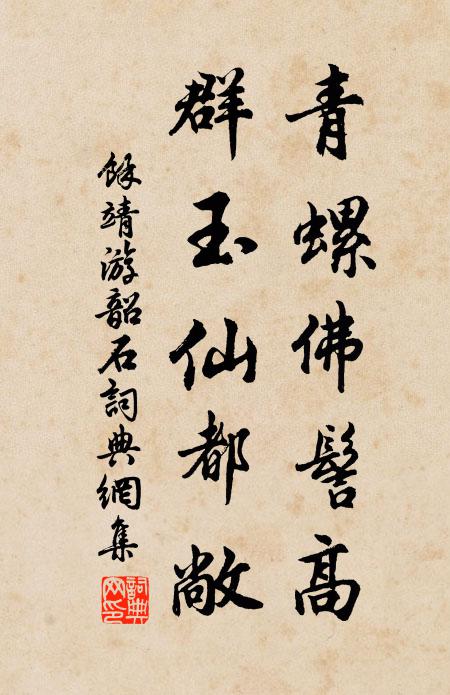 青螺佛髻高
群玉仙都敞
餘靖游韶石詞典網集